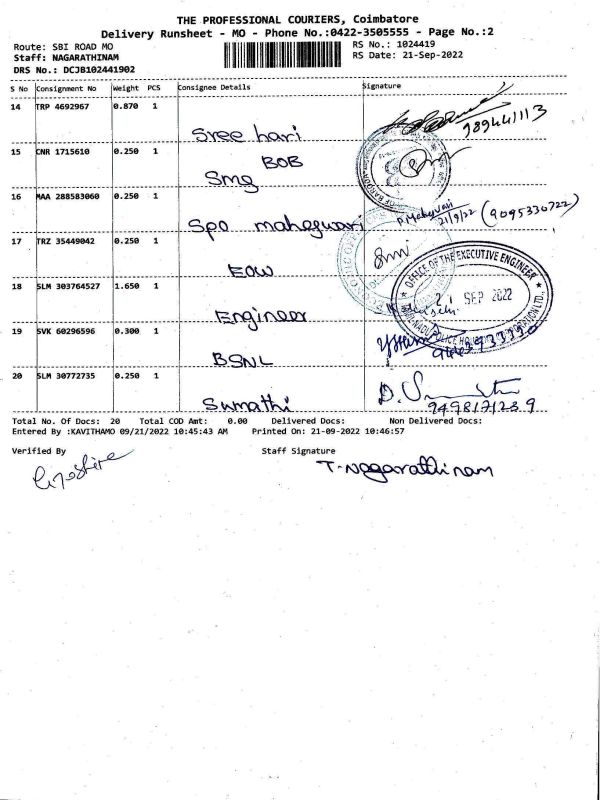 THE PROFESSIONAL COURIERS, Coimbatore
Delivery Runsheet - MO - Phone No.:0422-3505555 - Page No.:2
Route: SBI ROAD MO
RS No.: 1024419
Staff: NAGARATHINAM
RS Date: 21-Sep-2022
DRS No.: DCJB102441902
S No Consignment No Weight PCS Consignee Details Signature
14 TRP 4692967 0.870 1
Sree hari
15 CNR 1715610 0.250 1
BOB
Smg
16 MAA 288583060 0.250 1
Spo maheswari P. Maheswari 21/9/22 (9095330722)
17 TRZ 35449042 0.250 1
EOW
OFFICE OF THE EXECUTIVE ENGINEER
18 SLM 303764527 1.650 1
21 SEP 2022
Engineer
19 SVK 60296596 0.300 1
BSNL
20 SLM 30772735 0.250 1
Sumathi
9498171239
Total No. Of Docs: 20 Total COD Amt: 0.00 Delivered Docs: Non Delivered Docs:
Entered By :KAVITHAMO 09/21/2022 10:45:43 AM Printed On: 21-09-2022 10:46:57
Verified By Staff Signature
T-Nagarathinam